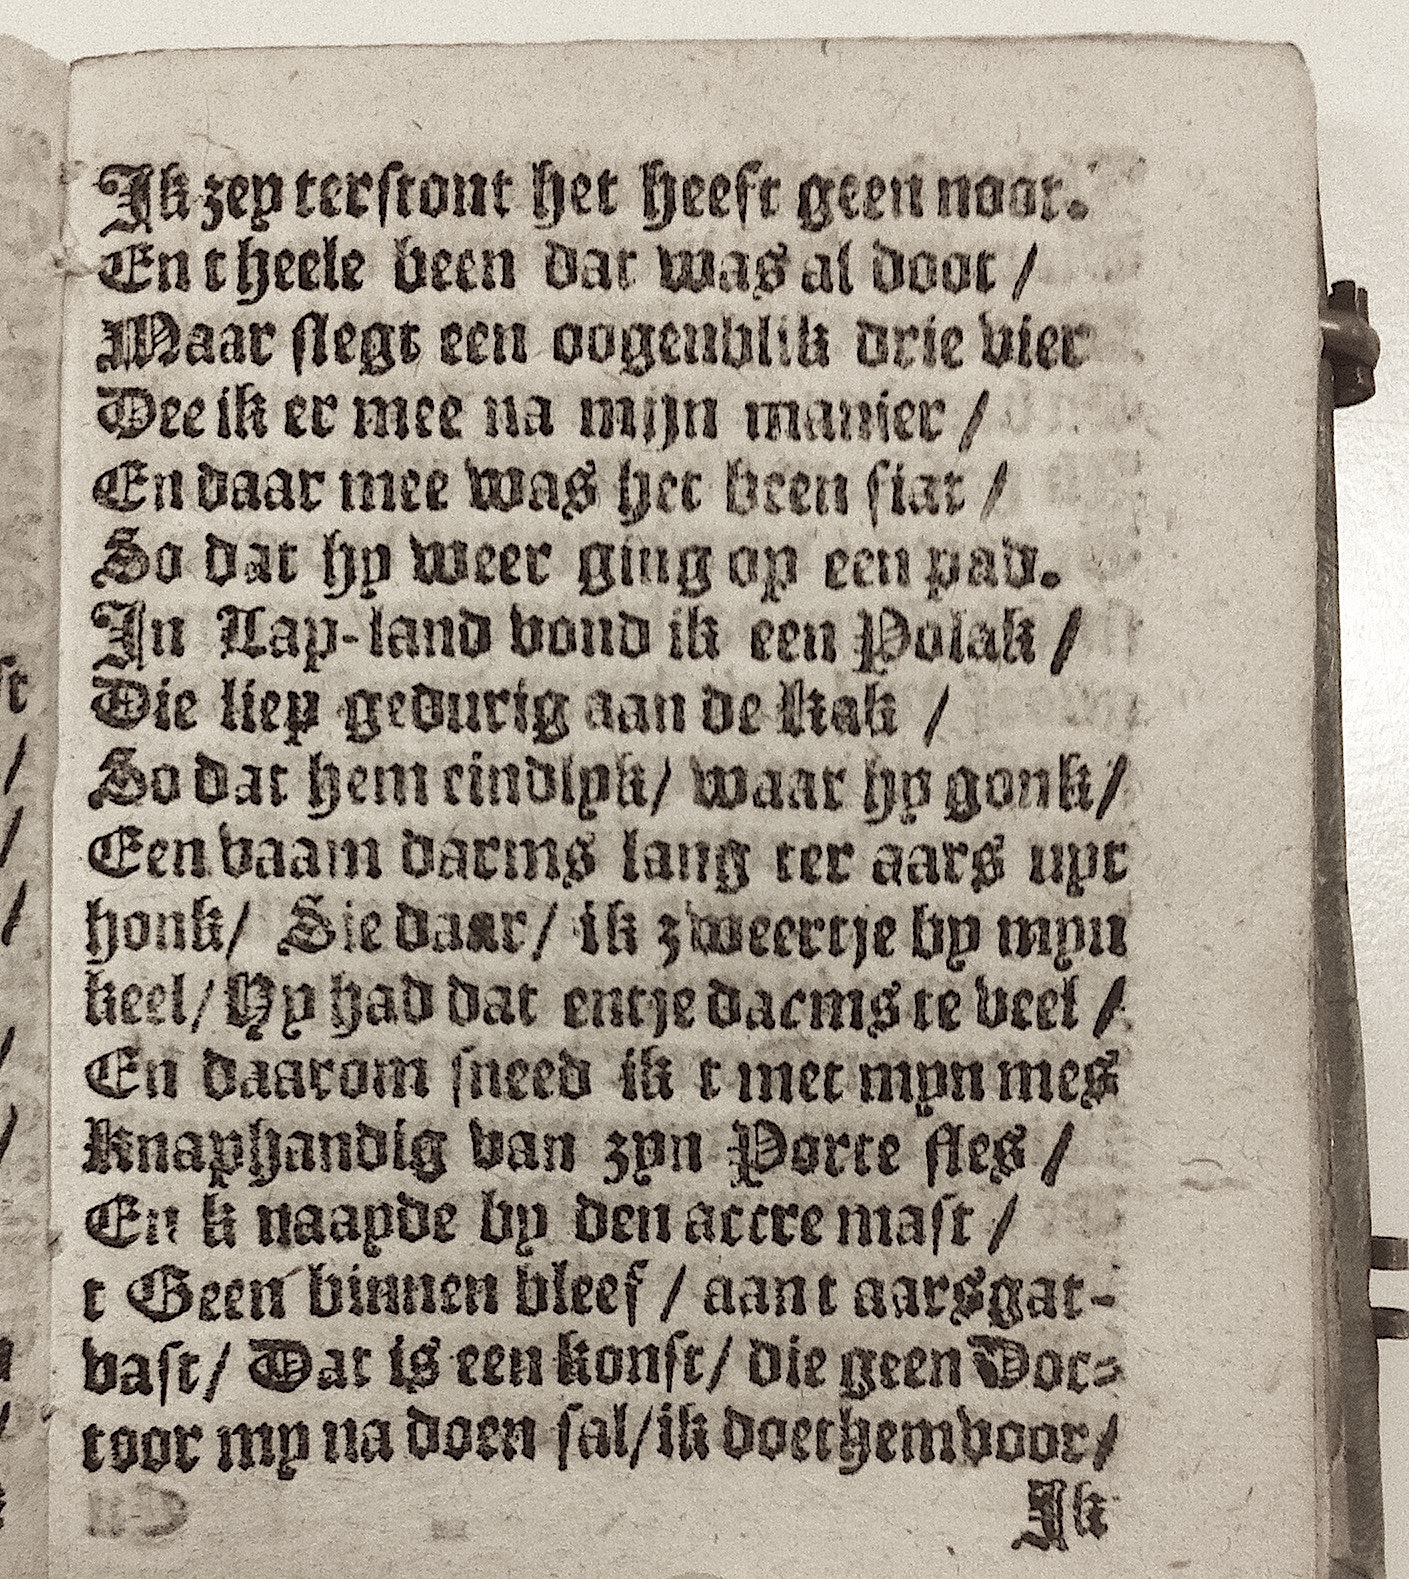 Ik zey terstont het heeft geen noot.
En t heele been dat was al doot /
Maar slegt een oogenblik drie vier
Dee ik er mee na mijn manier /
En daar mee was het been fiat /
So dat hy weer ging op een pad.
In Lap-land vond ik een Polak /
Die liep gedurig aan de kak /
So dat hem eindlyk/ waar hy gonk/
Een vaam darms lang ter aars uyt
honk/ Sie daar/ ik zweertje by myn
keel/ Hy had dat entje darms te veel /
En daarom sneed ik t met myn mes
Knaphandig van zyn Porte fles /
En k naayde by den attre mast /
t Geen binnen bleef / aan t aarsgat-
vast/ Dat is een konst/ die geen Doc-
toor my na doen sal/ ik doet hem voor/
Ik